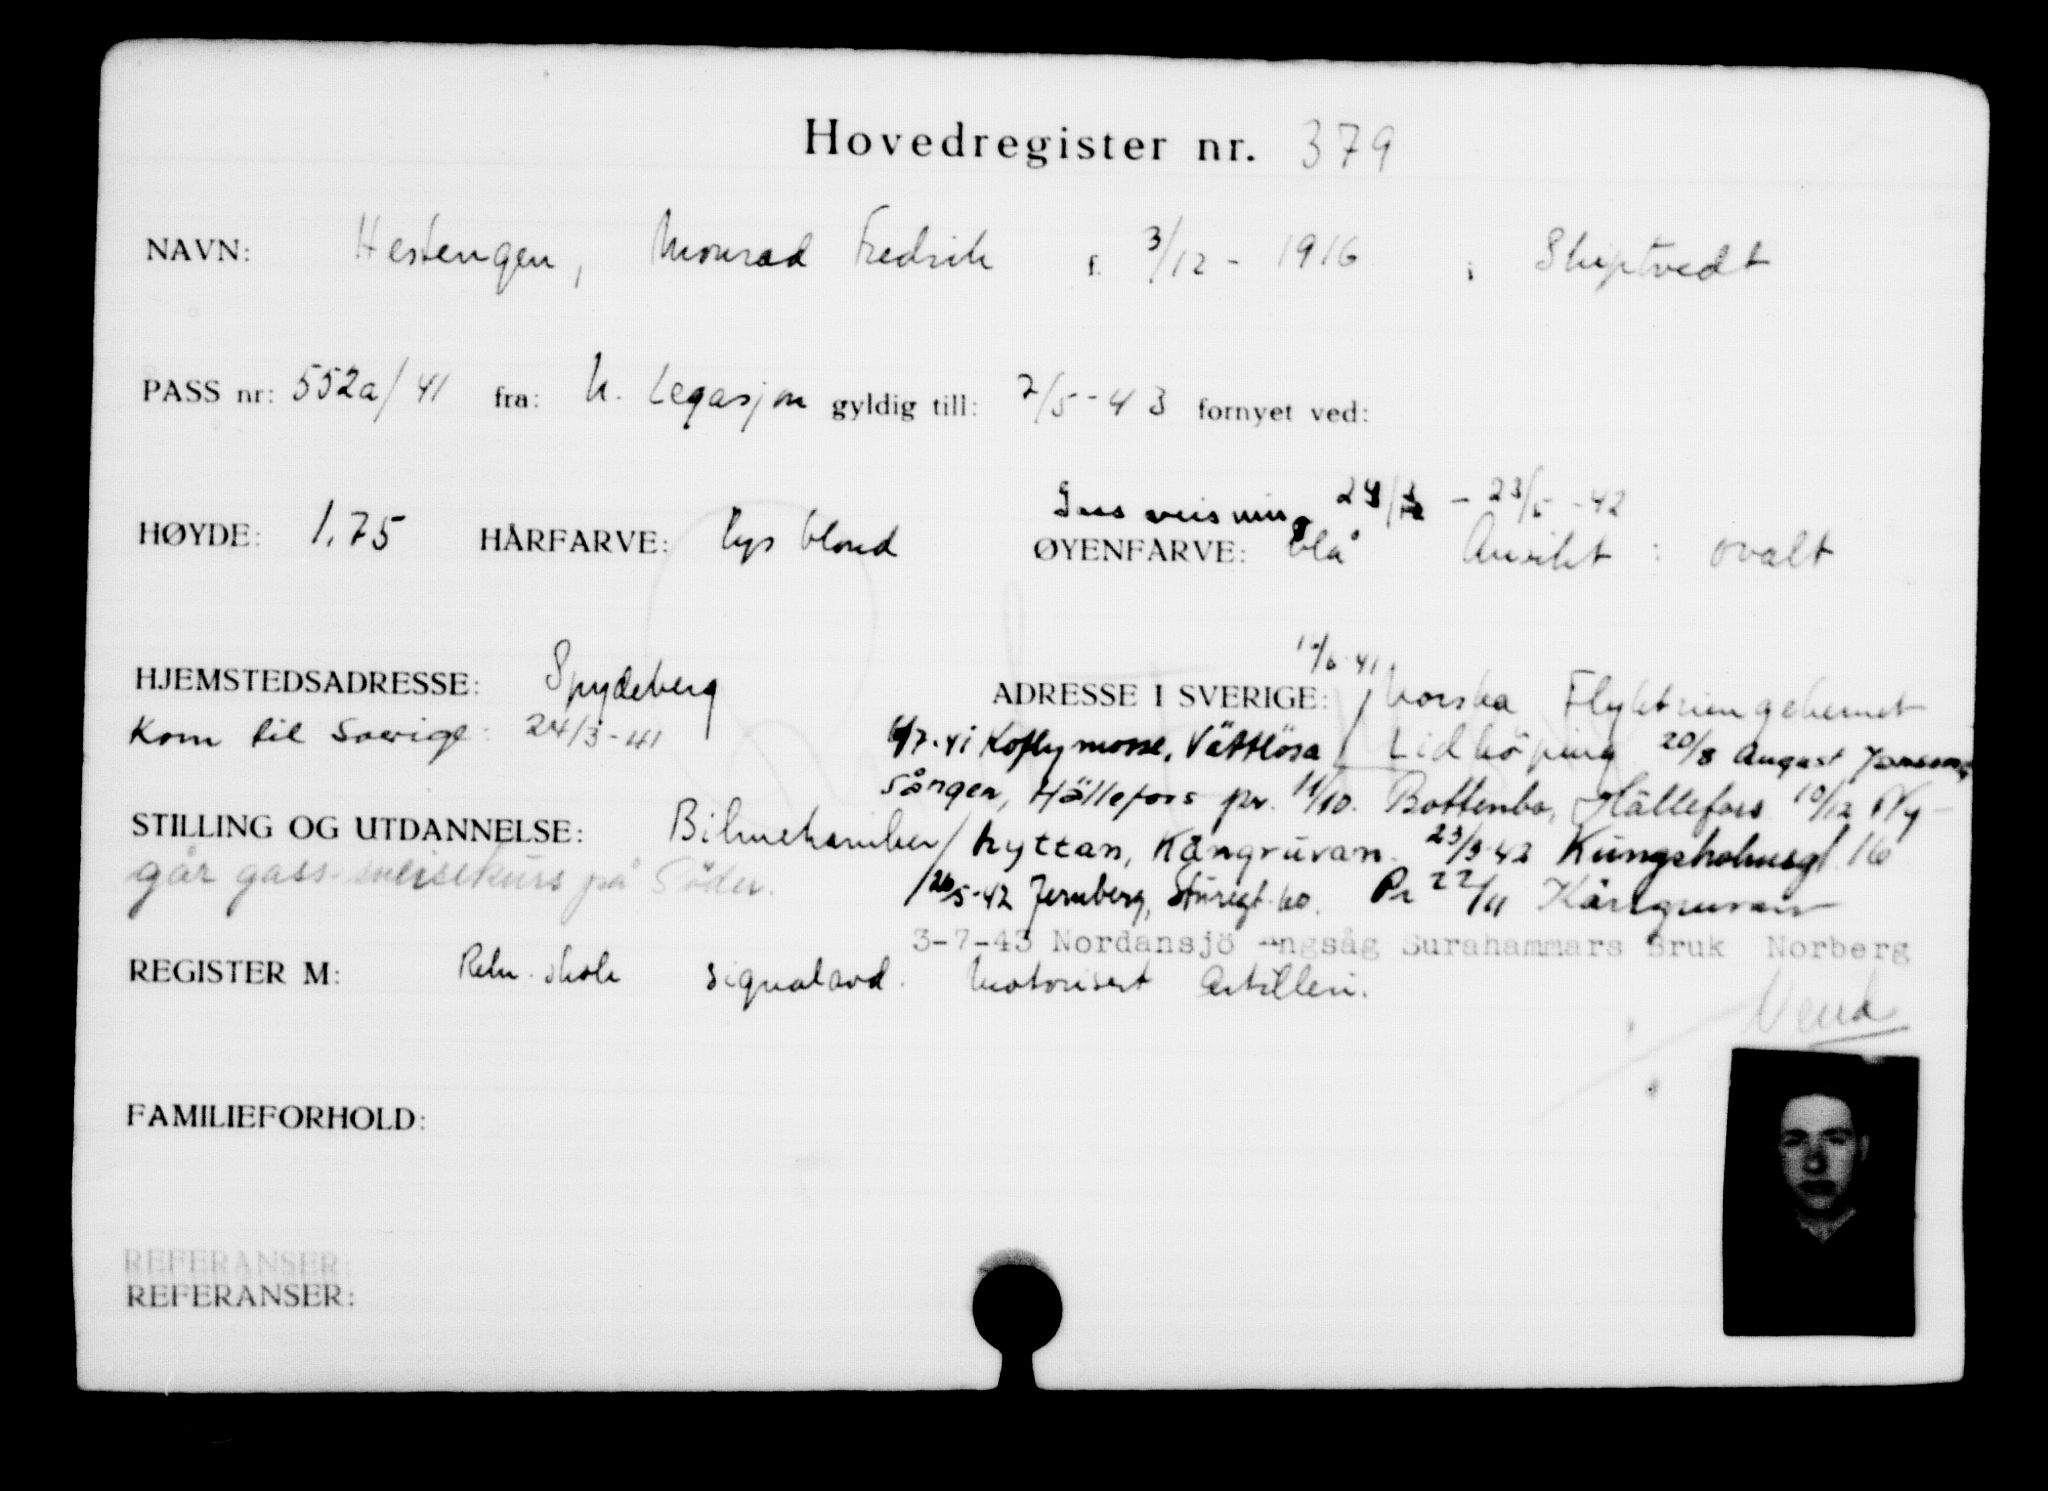 Hovedregister nr. 379
NAVN: Hestengen, Monrad Fredrik f. 3/12 - 1916 i Skiptvedt
PASS nr: 552a/41 fra: N. Legasjon gyldig till: 7/5-43 fornyet ved:
23/5-42
HØYDE: 1.75 HÅRFARVE: lys blond ØYENFARVE: blå Ansikt: ovalt
HJEMSTEDSADRESSE: Spydeberg ADRESSE I SVERIGE: Norska Flyktningehemet
Kom til Sverige: 24/3-41 Vättlösa / Lidköping 20/8 August Janssons
Sången, Hällefors pr. 11/10. Bottenbo, Hällefors 10/12 Ny-
STILLING OG UTDANNELSE: Bilmekaniker / hyttan, Kärrgruvan. 23/3-42 Kungsholmsgt. 16
går gass-sveisekurs på Söder. 26/5-42 Jernberg, Sturegt. 60. Pr 22/11 Kärrgruvan
3-7-43 Nordansjö ngsåg Surahammars Bruk Norberg
REGISTER M: Rekr. skole signalavd. Motorisert Artilleri.
Vend
FAMILIEFORHOLD:
REFERANSER:
REFERANSER: